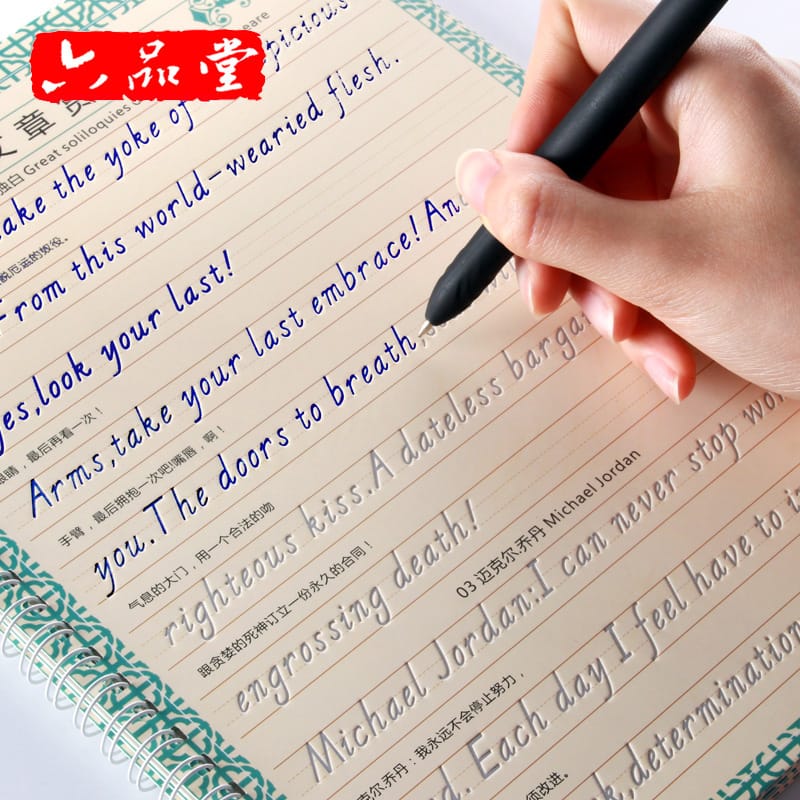 六品堂
章
独白 Great soliloquies
ake the yoke of picious
脱厄运的奴役。
From this world-wearied flesh.
yes,look your last!
眼睛，最后再看一次！
Arms,take your last embrace!And
手臂，最后拥抱一次吧!嘴唇，啊！
you.The doors to breath,
气息的大门，用一个合法的吻
righteous kiss.A dateless barga
跟贪婪的死神订立一份永久的合同！
engrossing death!
03 迈克尔.乔丹 Michael Jordan
Michael Jordan:I can never stop wor
克尔.乔丹：我永远不会停止努力，
d. Each day I feel have to i
须改进。
k,determination